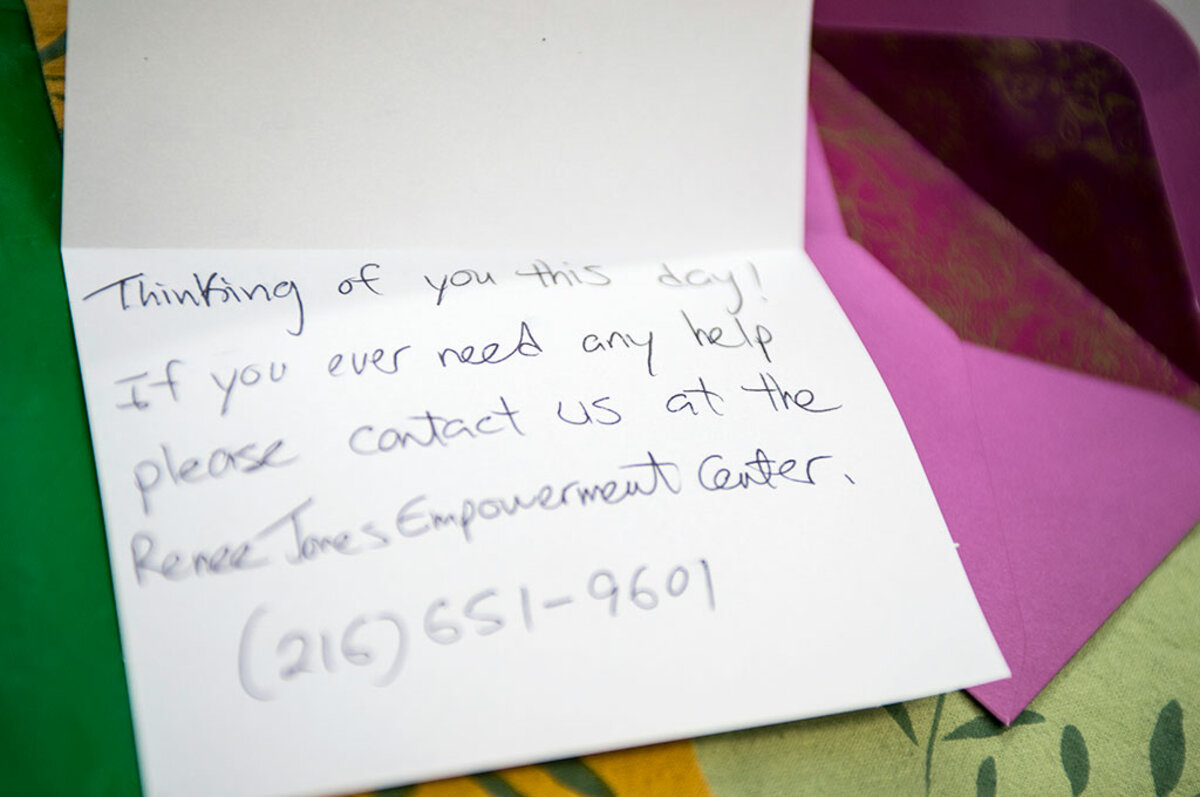 Thinking of you this day!
If you ever need any help
please contact us at the
Renee Jones Empowerment Center.
(216) 651-9601